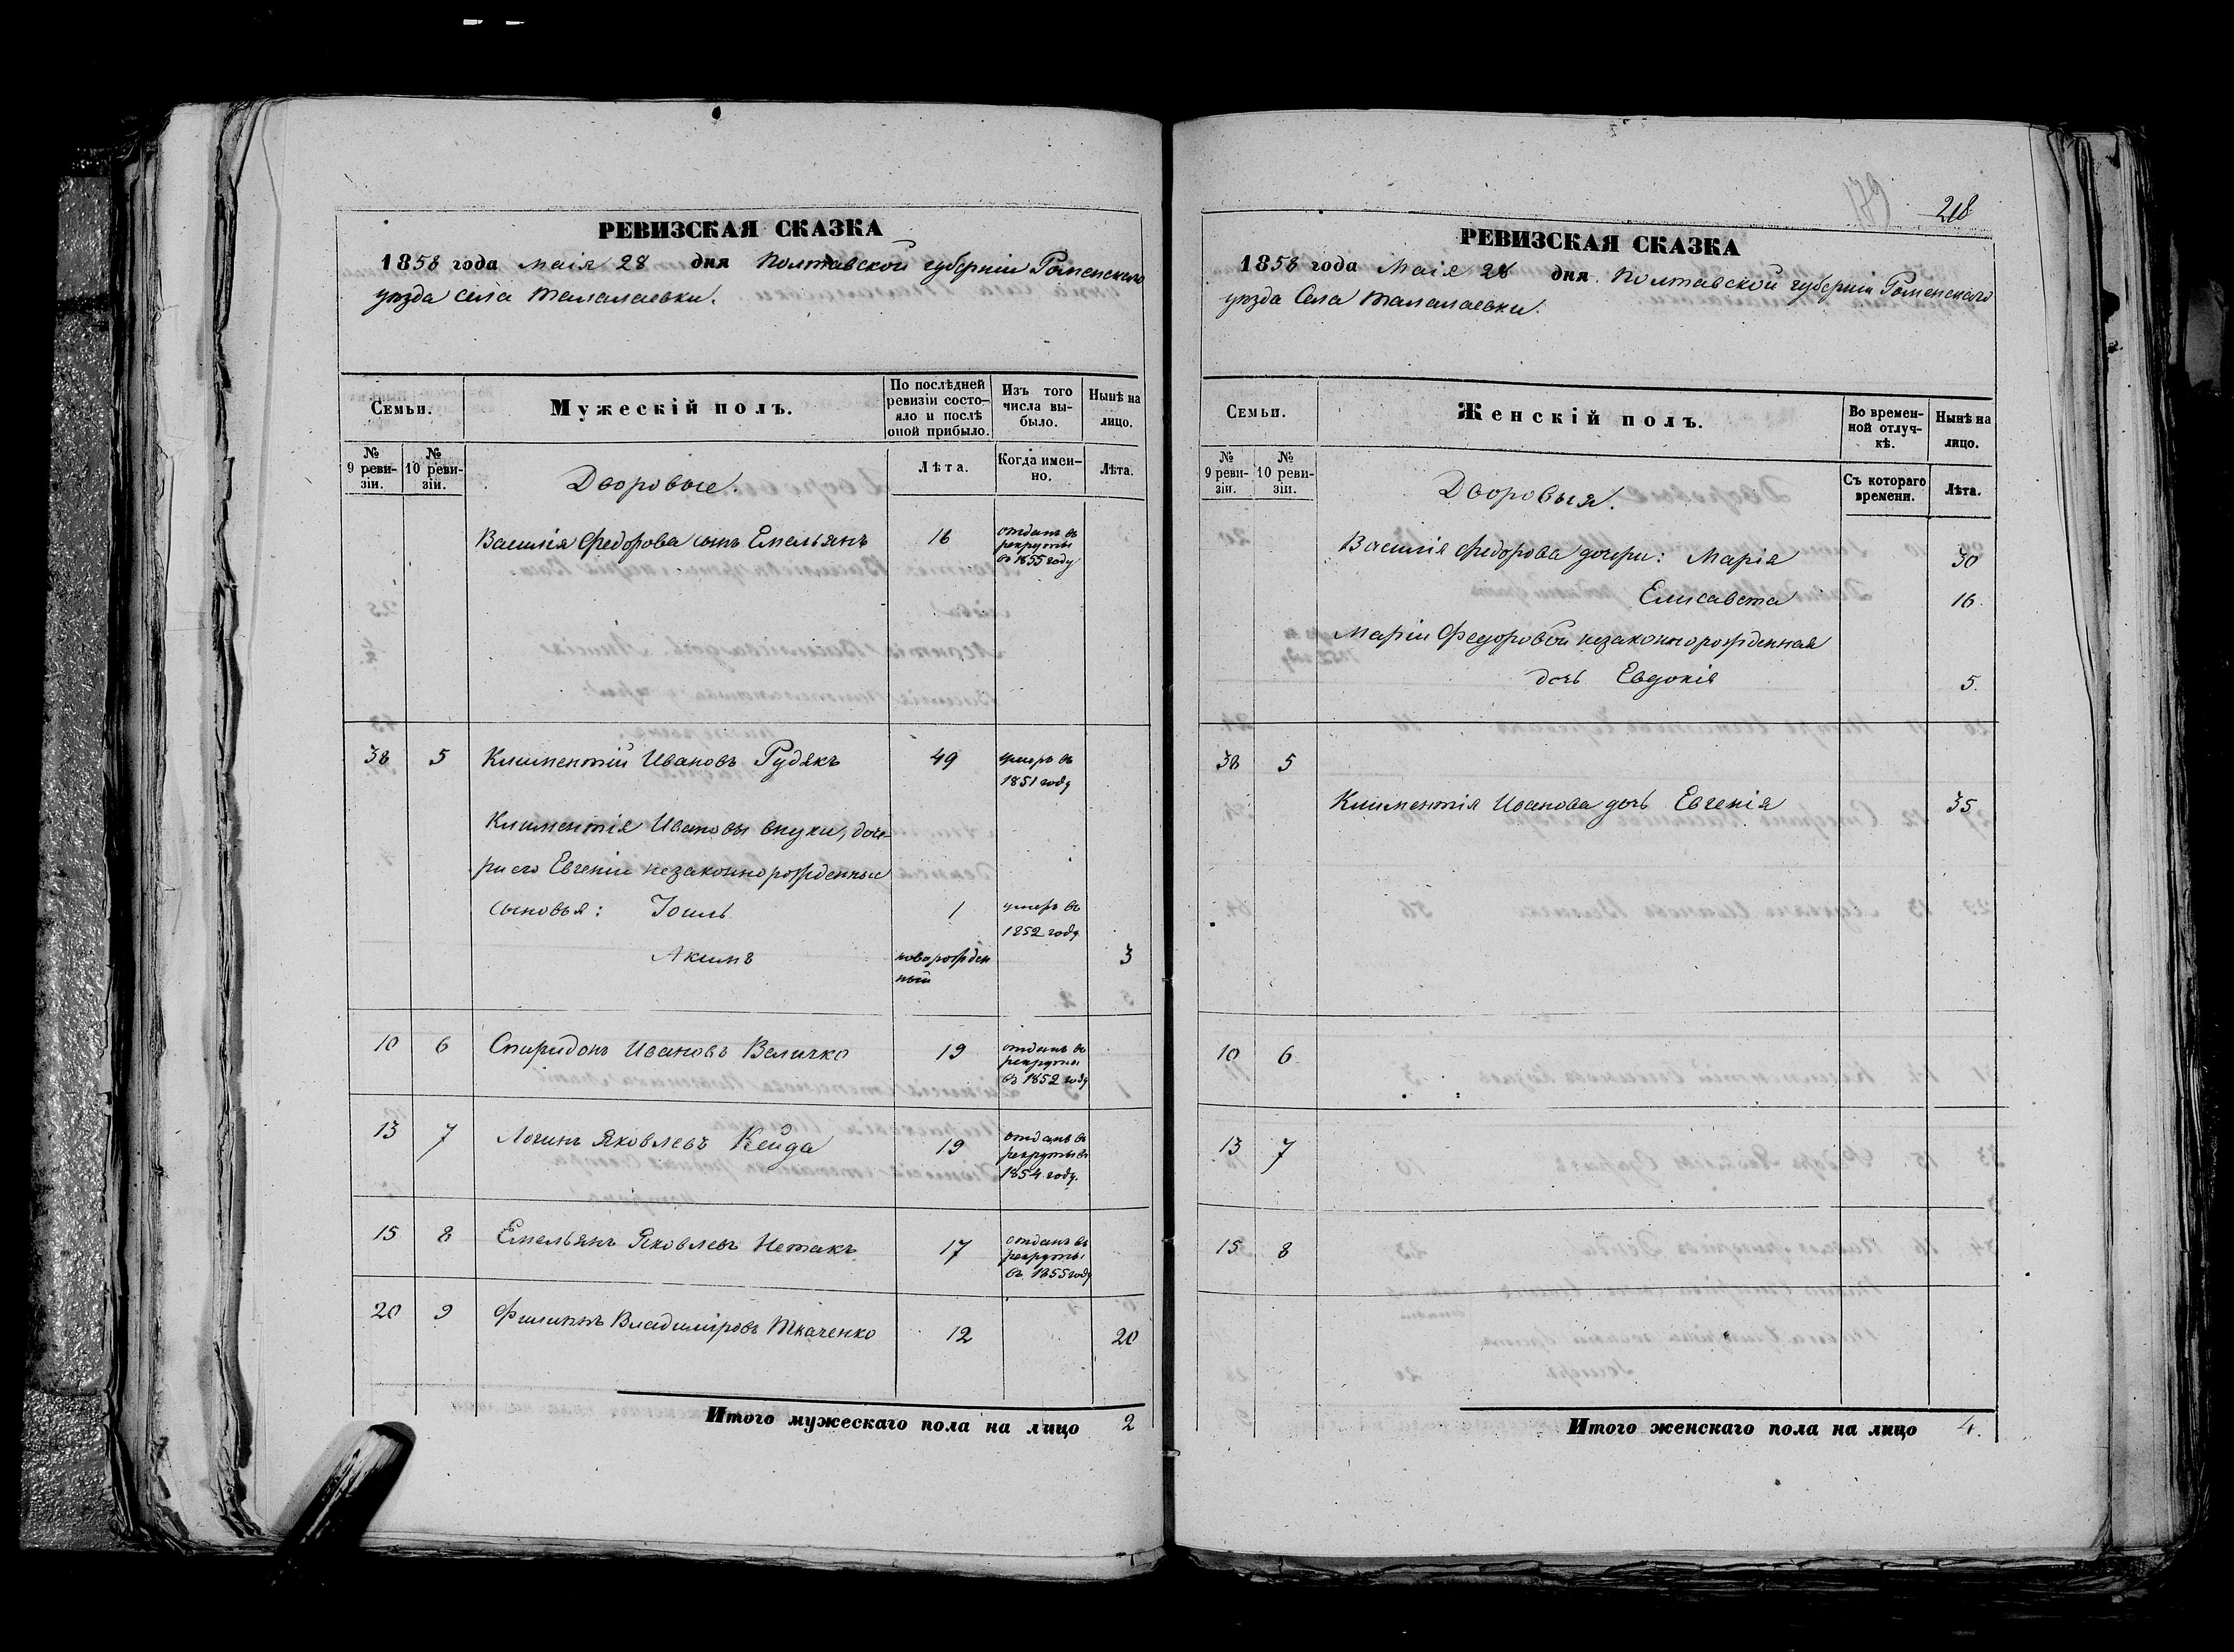 РЕВИЗСКАЯ СКАЗКА
1858 года Маія 28 дня Полтавской губерніи Роменскаго
уѣзда села Талалаевки.
Семьи.
Мужескій полъ.
По послѣдней ревизіи состо-
яло и послѣ оной прибыло.
Изъ того числа вы-
было.
Нынѣ на лицо.
№ 9 реви-
зіи.
№ 10 реви-
зіи.
Дворовые.
Лѣта.
Когда имен-
но.
Лѣта.
Василія Федорова сынъ Емельянъ 16 отданъ въ
рекруты
въ 1855 году
38 5 Климентій Ивановъ Рудякъ 49 умеръ въ
1851 году
Климентія Иванова внуки, доче-
ри его Евгеніи незаконнорожденные
сыновья: Іоиль 1 умеръ въ
1852 году
Акимъ новорожден 3
ный
10 6 Спиридонъ Ивановъ Величко 19 отданъ въ
рекруты
въ 1852 году
13 7 Логинъ Яковлевъ Кейда 19 отданъ въ
рекруты въ
1854 году.
15 8 Емельянъ Яковлевъ Нетакъ 17 отданъ въ
рекруты
въ 1855 году
20 9 Филиппъ Владиміровъ Ткаченко 12 20
Итого мужескаго пола на лицо 2
179 218
РЕВИЗСКАЯ СКАЗКА
1858 года Маія 28 дня Полтавской губерніи Роменскаго
уѣзда Села Талалаевки.
Семьи.
Женскій полъ.
Во времен-
ной отлуч-
кѣ.
Нынѣ на лицо.
№ 9 реви-
зіи.
№ 10 реви-
зіи.
Дворовыя.
Съ котораго времени.
Лѣта.
Василія Федорова дочери: Марія 30
Елисавета 16.
Маріи Федоровой незаконнорожденная
дочь Евдокія 5.
38 5
Климентія Иванова дочь Евгенія 35
10 6
13 7
15 8
Итого женскаго пола на лицо 4.